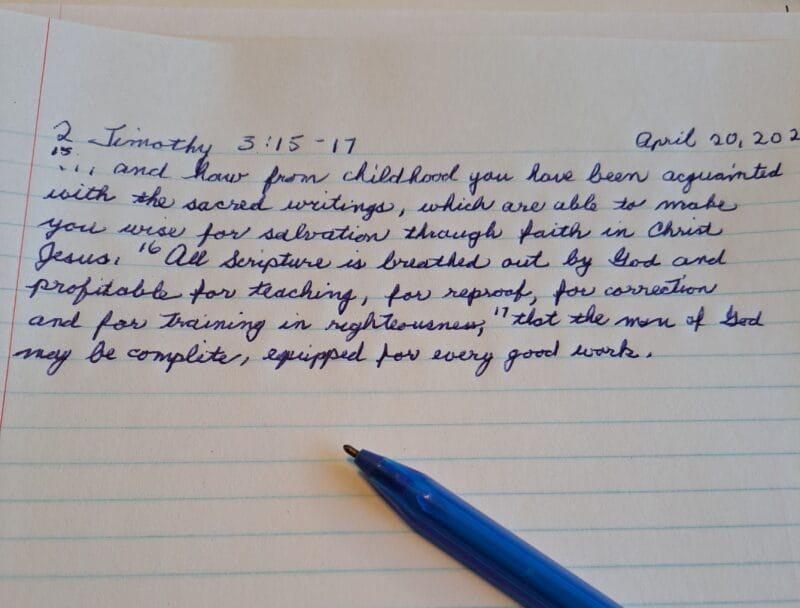 2 Timothy 3:15-17 April 20, 202
15... and how from childhood you have been acquainted
with the sacred writings, which are able to make
you wise for salvation through faith in Christ
Jesus. 16 All Scripture is breathed out by God and
profitable for teaching, for reproof, for correction
and for training in righteousness, 17 that the man of God
may be complete, equipped for every good work.